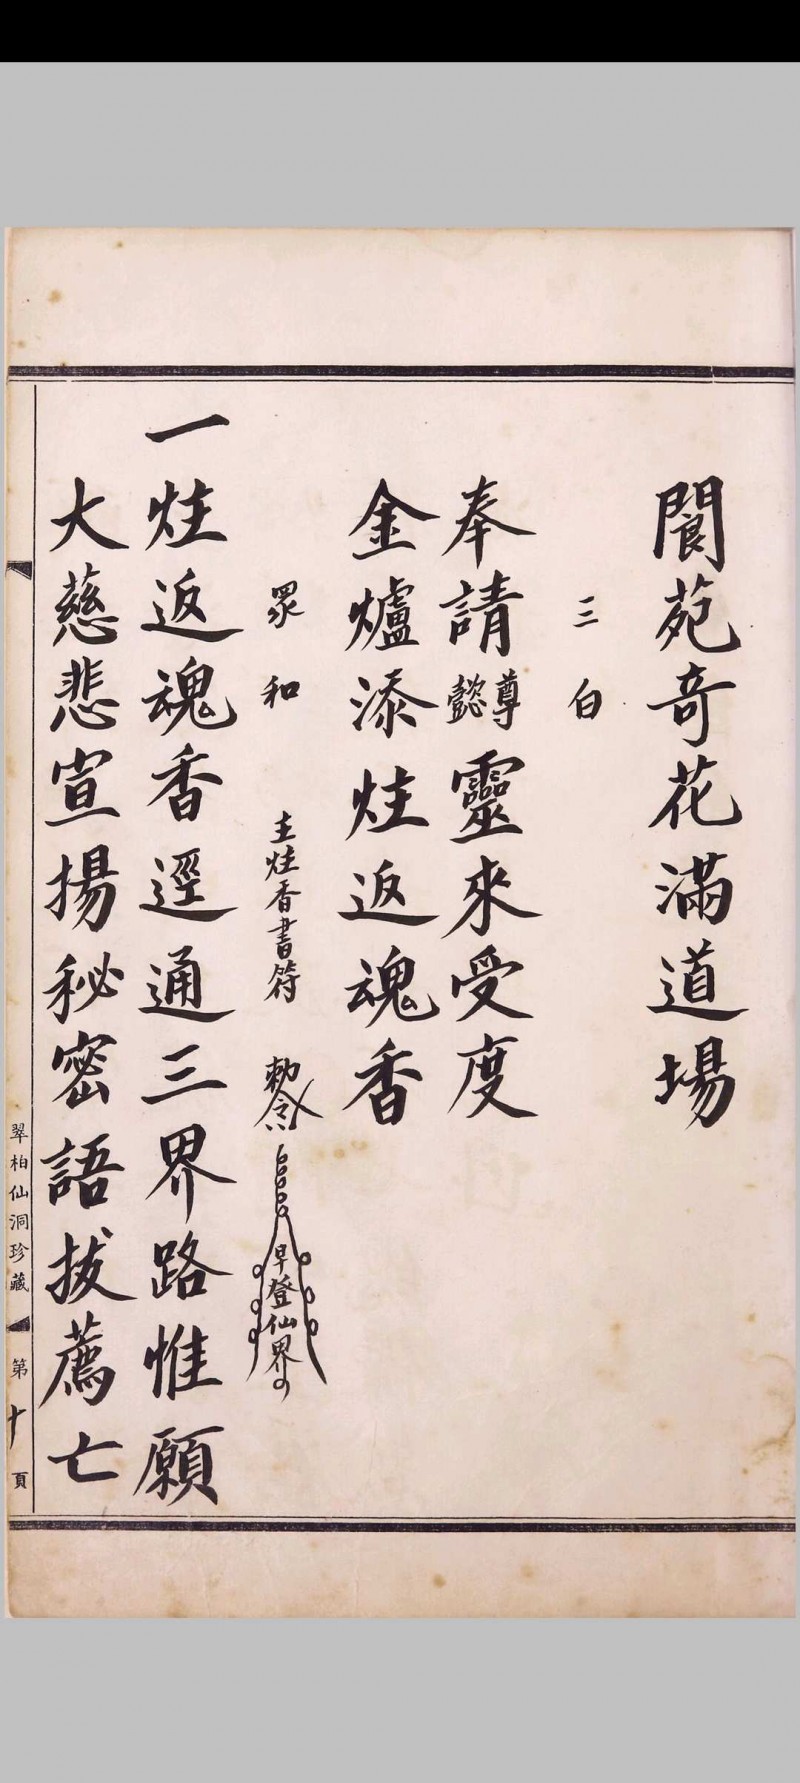 閬苑奇花滿道場
三白
奉請尊懿靈來受度
金爐添炷返魂香
眾和
主炷香書符
勅令
早登仙界
一炷返魂香逕通三界路惟願
大慈悲宣揚秘密語拔薦亡
翠柏仙洞珍藏
第十頁